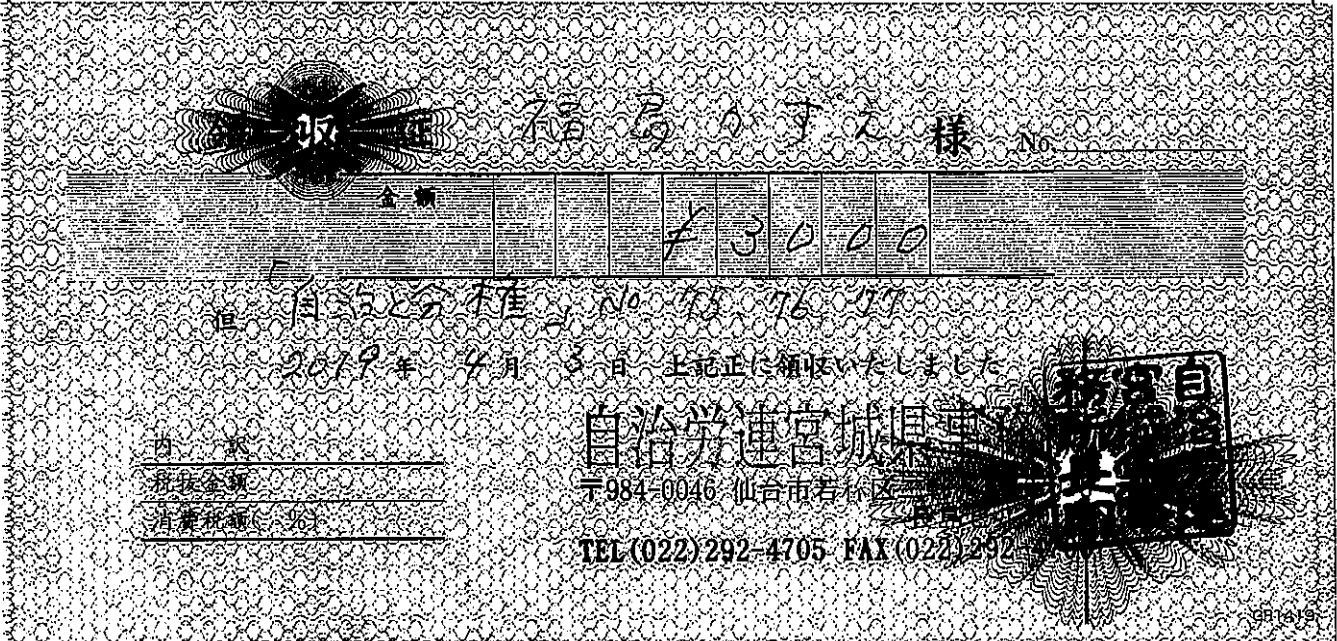 領収証 福島かずえ 様 No.
金額 ¥3000
但 「自治と分権」No 75、76、77
2019年 4月 3日 上記正に領収いたしました
内訳
税抜金額
消費税額( %)
自治労連宮城県
〒984-0046 仙台市若林区
TEL(022)292-4705 FAX(022)292-4
GB1419